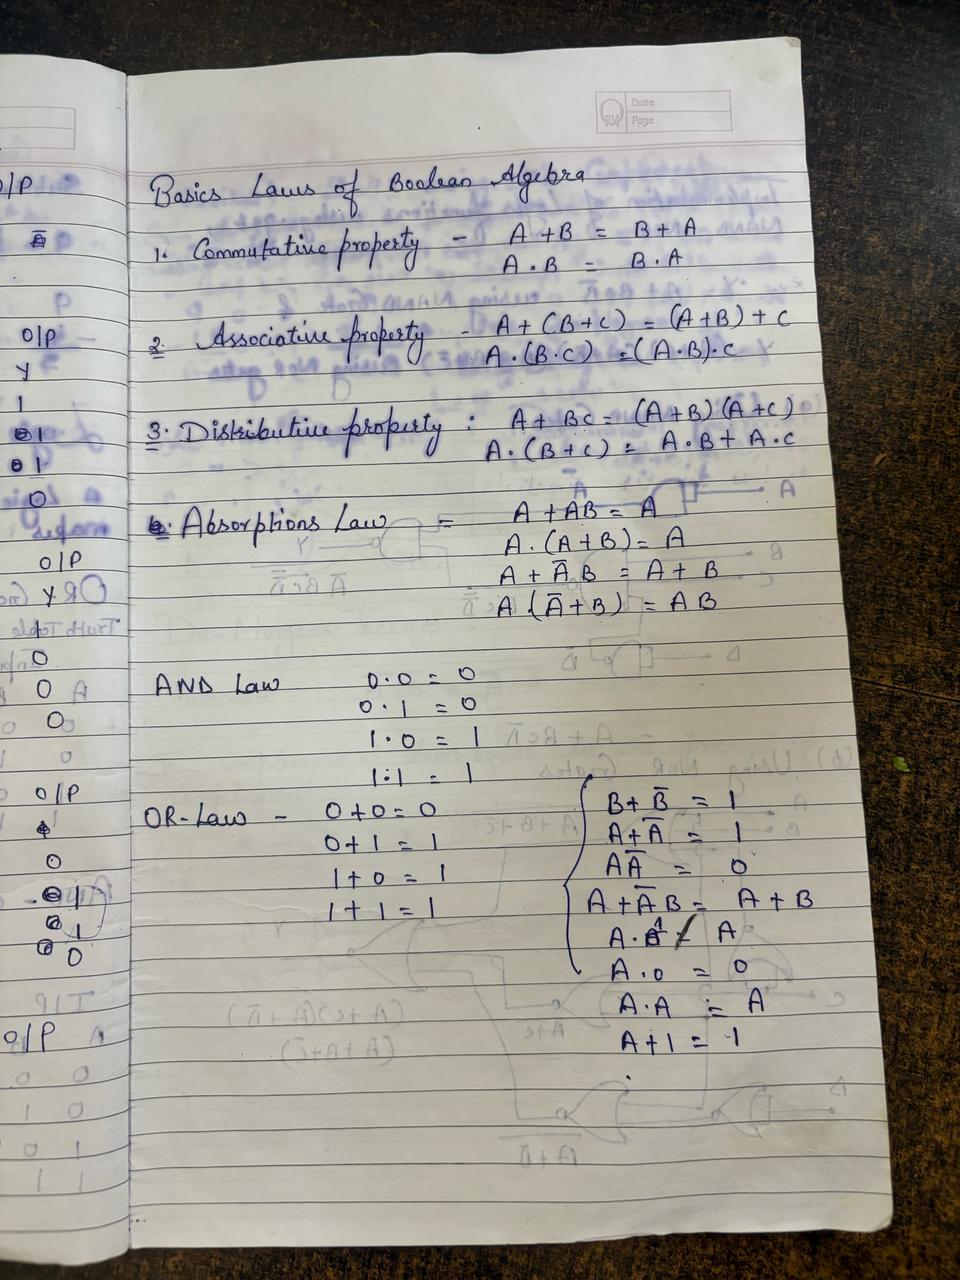 Date
Page
Basics Laws of Boolean Algebra
1. Commutative property - A + B = B + A
A . B = B . A
2. Associative property - A + (B + C) = (A + B) + C
A . (B . C) = (A . B) . C
3. Distributive property : A + BC = (A + B) (A + C)
A . (B + C) = A . B + A . C
Absorptions Law = A + AB = A
A . (A + B) = A
A + A̅ B = A + B
A (A̅ + B) = AB
AND Law 0 . 0 = 0
0 . 1 = 0
1 . 0 = 1
1 . 1 = 1
OR-Law - 0 + 0 = 0
0 + 1 = 1
1 + 0 = 1
1 + 1 = 1
B + B̅ = 1
A + A̅ = 1
A A̅ = 0
A + A̅ B = A + B
A . = A
A . 0 = 0
A . A = A
A + 1 = 1
O/P
O/P
Y
1
1
1
0
O/P
Y
0
0
0
O/P
0
1
1
0
O/P